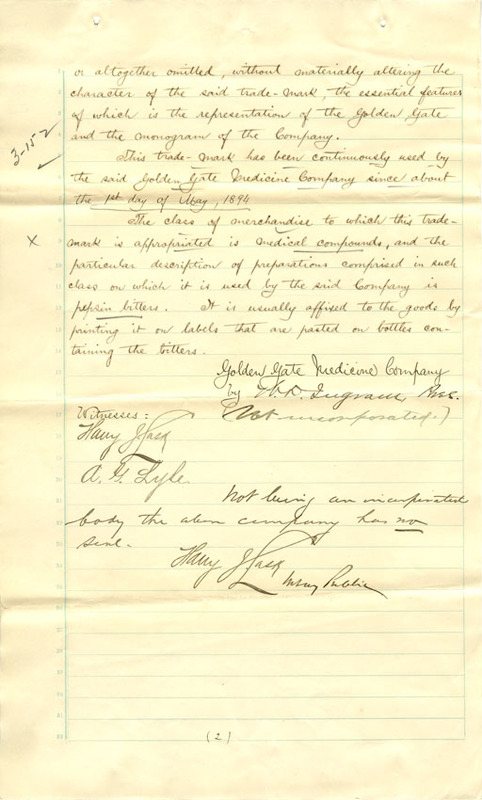 or altogether omitted, without materially altering the
character of the said trade-mark, the essential features
of which is the representation of the Golden Gate
and the monogram of the Company.
3-15-2
This trade-mark has been continuously used by
the said Golden Gate Medicine Company since about
the 1st day of May, 1894
The class of merchandise to which this trade-
x
mark is appropriated is medical compounds, and the
particular description of preparations comprised in such
class on which it is used by the said Company is
pepsin bitters. It is usually affixed to the goods by
printing it on labels that are pasted on bottles con-
taining the bitters.
Golden Gate Medicine Company
by Ingram, Pres.
Witnesses: (Not incorporated.)
Harry J Lask
A. G. Lyle.
Not being an incorporated
body the above company has no
seal.
Harry J Lask
Notary Public
(2)